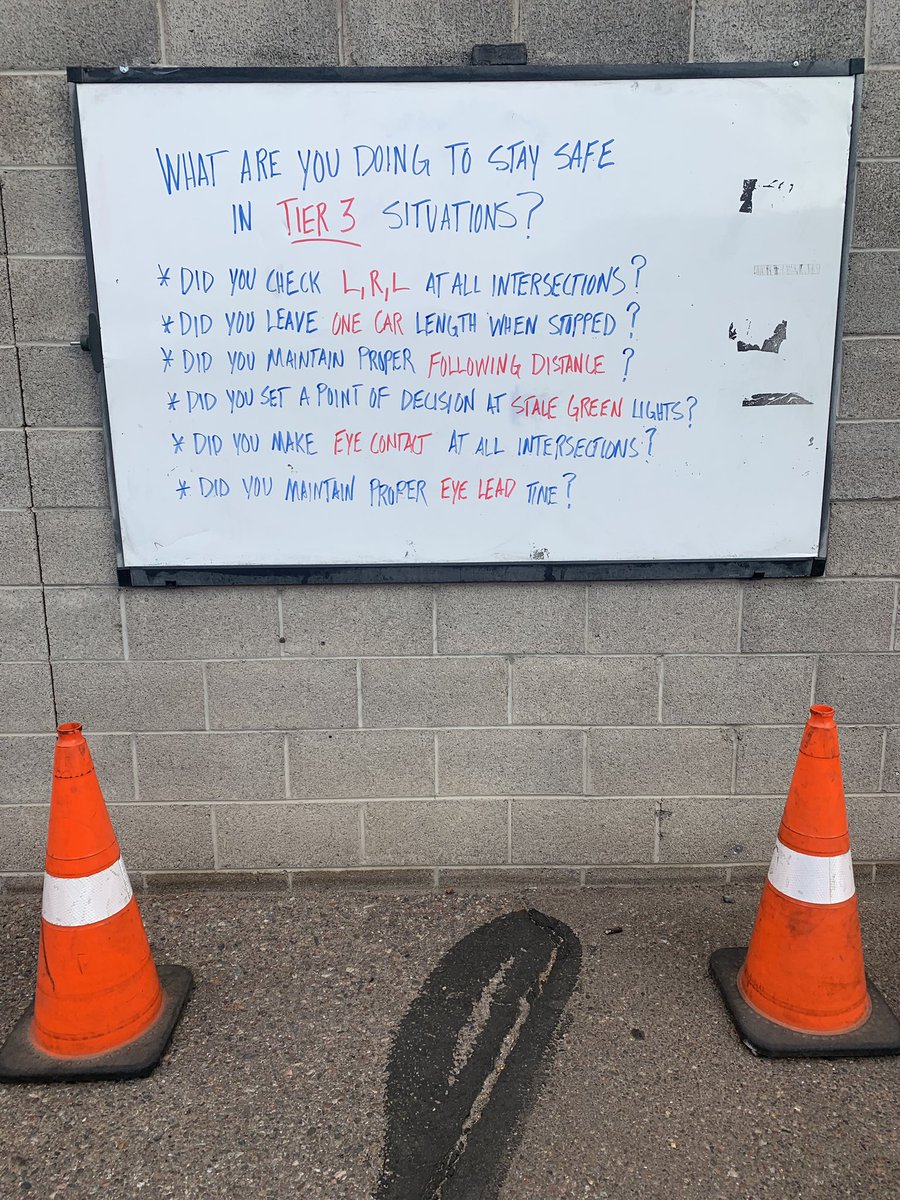 WHAT ARE YOU DOING TO STAY SAFE
IN TIER 3 SITUATIONS?
* DID YOU CHECK L,R,L AT ALL INTERSECTIONS?
* DID YOU LEAVE ONE CAR LENGTH WHEN STOPPED?
* DID YOU MAINTAIN PROPER FOLLOWING DISTANCE?
* DID YOU SET A POINT OF DECISION AT STALE GREEN LIGHTS?
* DID YOU MAKE EYE CONTACT AT ALL INTERSECTIONS?
* DID YOU MAINTAIN PROPER EYE LEAD TINE?